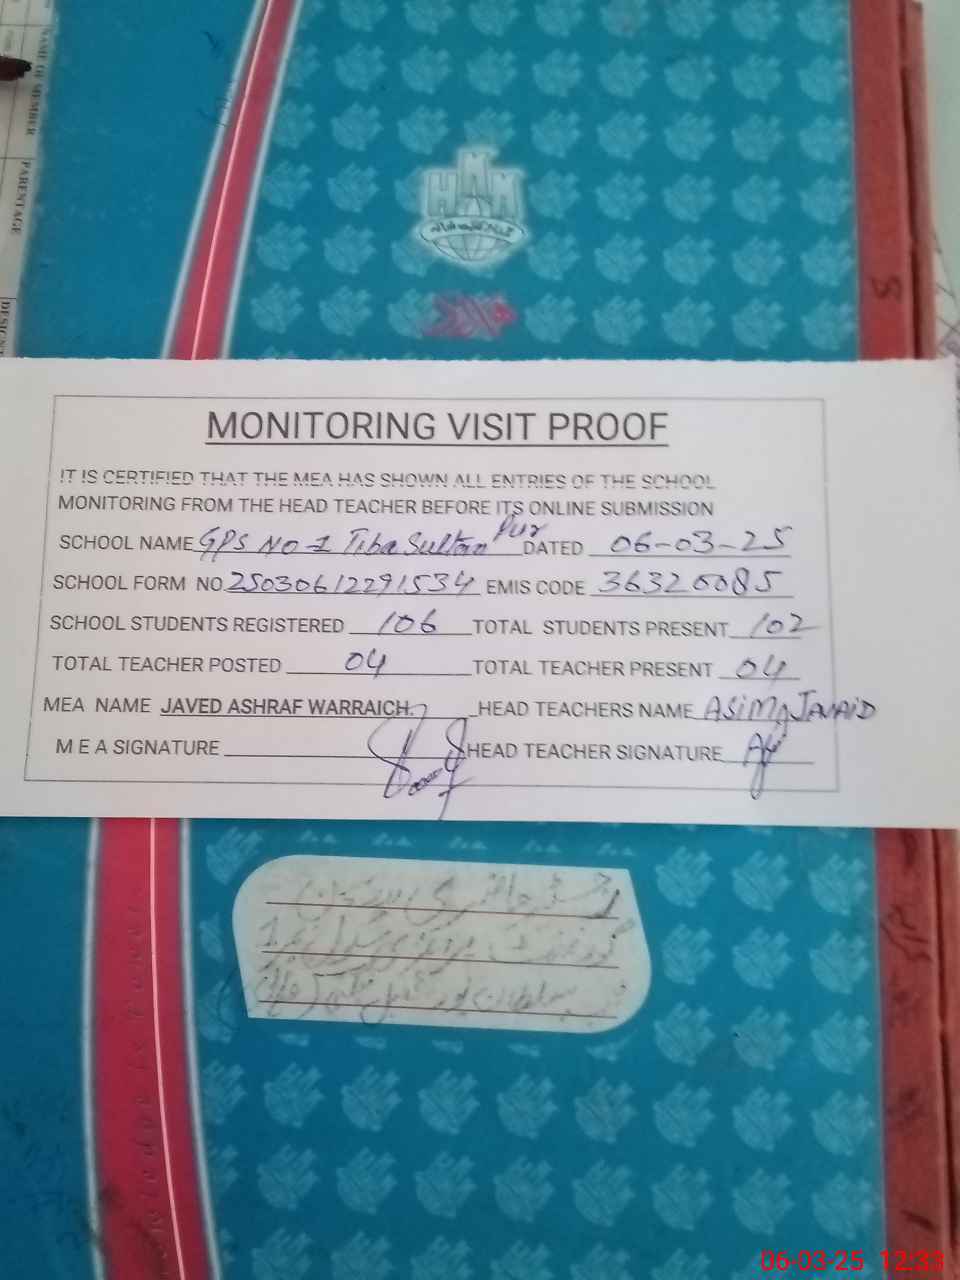 NAME OF MEMBER
PARENTAGE
MONITORING VISIT PROOF
IT IS CERTIFIED THAT THE MEA HAS SHOWN ALL ENTRIES OF THE SCHOOL
MONITORING FROM THE HEAD TEACHER BEFORE ITS ONLINE SUBMISSION
SCHOOL NAME GPS NO-1 Tiba Sultan Pur DATED 06-03-25
SCHOOL FORM NO. 25030612291534 EMIS CODE 36320085
SCHOOL STUDENTS REGISTERED 106 TOTAL STUDENTS PRESENT 102
TOTAL TEACHER POSTED 04 TOTAL TEACHER PRESENT 04
MEA NAME JAVED ASHRAF WARRAICH. HEAD TEACHERS NAME ASiMA JAVAiD
M E A SIGNATURE HEAD TEACHER SIGNATURE
رجسٹر حاضری
گورنمنٹ پرائمری سکول نمبر 1
06-03-25 12:33